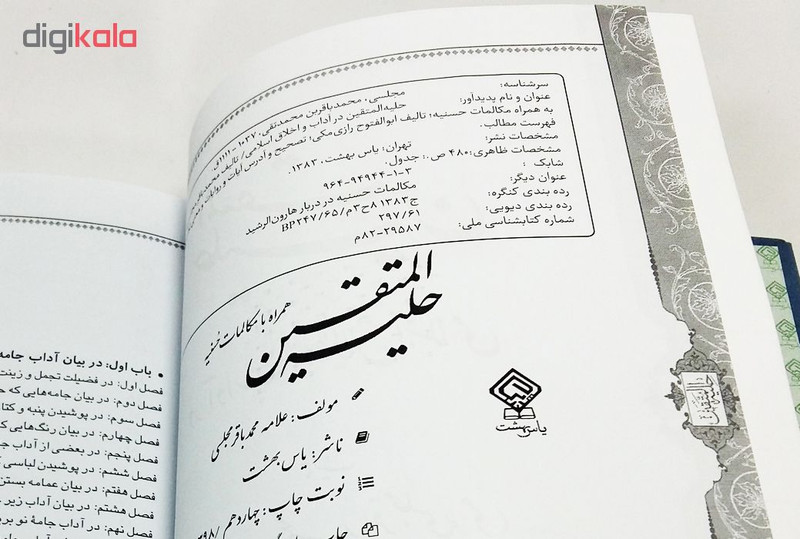 digikala
سرشناسه: مجلسی، محمدباقربن محمدتقی، ۱۰۳۷-۱۱۱۱ق.
عنوان و نام پدیدآور: حلیه‌المتقین در آداب و اخلاق اسلامی/ تالیف محمدباقر
به همراه مکالمات حسنیه؛ تالیف ابوالفتوح رازی‌مکی؛ تصحیح و آدرس آیات و روایات
فهرست مطالب.
مشخصات نشر: تهران: یاس بهشت، ۱۳۸۳.
مشخصات ظاهری: ۴۸۰ ص.: جدول.
شابک: ۹۶۴-۹۴۹۴۴-۱-۳
عنوان دیگر: مکالمات حسنیه در دربار هارون‌الرشید
رده بندی کنگره: BP۲۴۷/۶۵/م۳ح۸ ۱۳۸۳ج
رده بندی دیویی: ۲۹۷/۶۱
شماره کتابشناسی ملی: ۸۲-۲۹۵۸۷م
حلیة المتقین
همراه با مکالمات حُسنیه
مولف: علامه محمد باقر مجلسی
ناشر: یاس بهشت
نوبت چاپ: چهاردهم /
یاس بهشت
حلیة المتقین
باب اول: در بیان آداب جامه
فصل اول: در فضیلت تجمل و زینت
فصل دوم: در بیان جامه‌هایی که
فصل سوم: در پوشیدن پنبه و کتا
فصل چهارم: در بیان رنگ‌هایی که
فصل پنجم: در بعضی از آداب
فصل ششم: در پوشیدن لباسی ک
فصل هفتم: در بیان عمامه بستن
فصل هشتم: در بیان آداب زیر
فصل نهم: در آداب جامهٔ نو بر